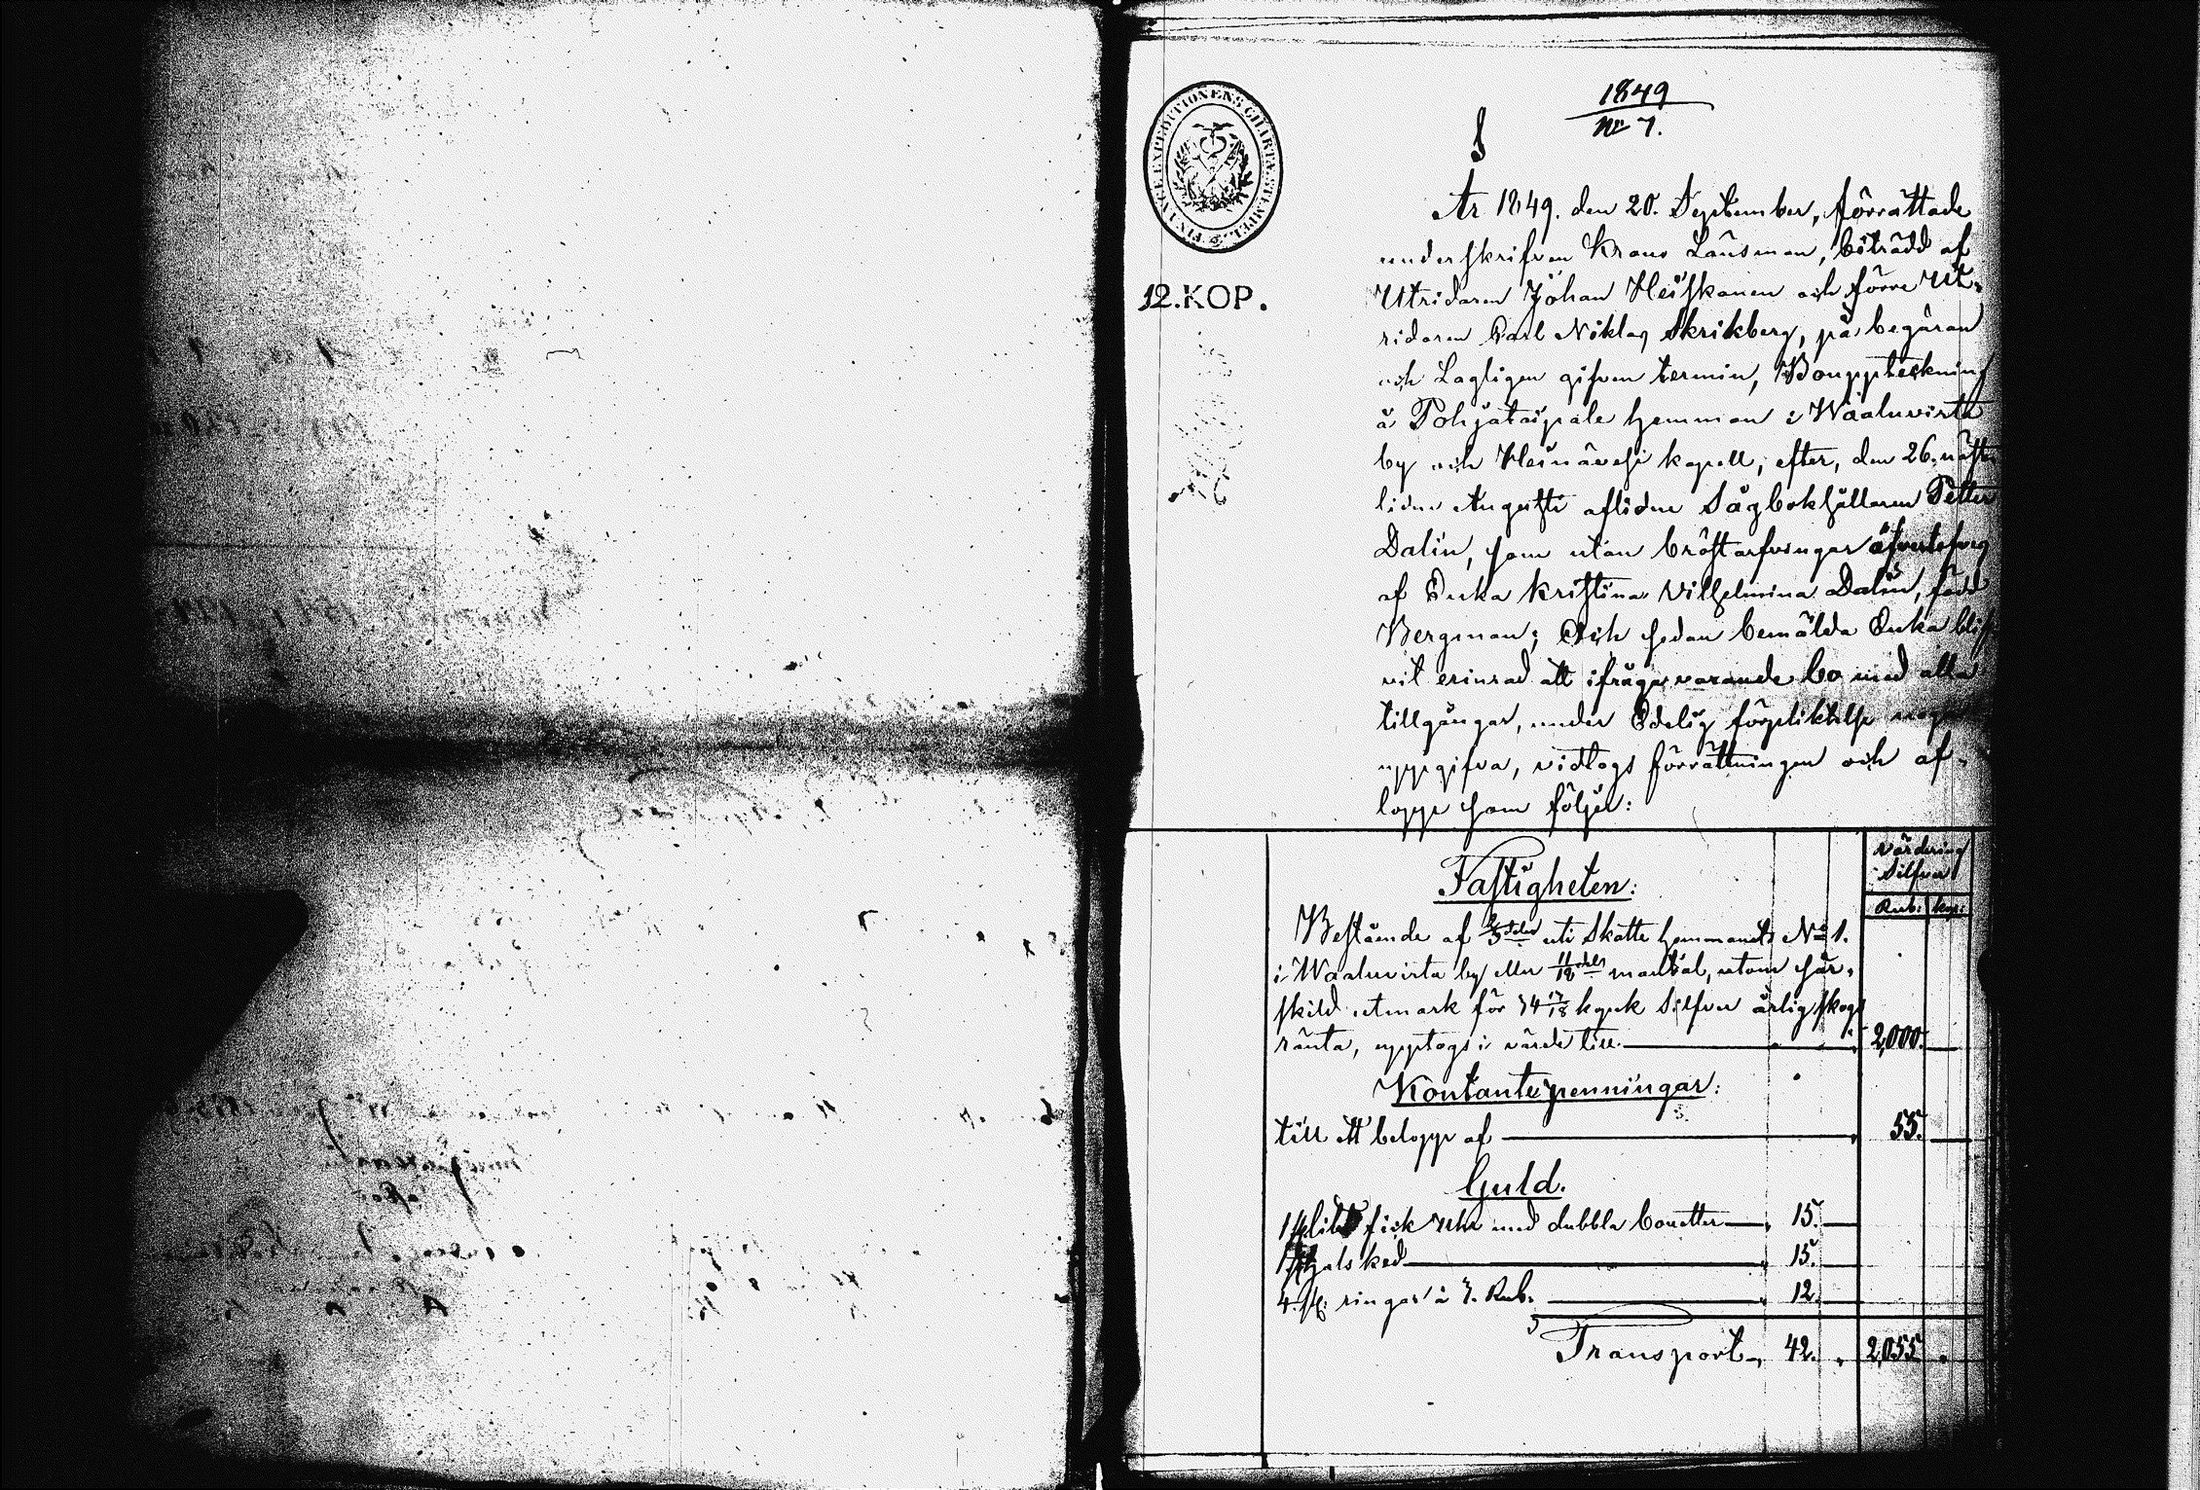 1849
No 7.
FINANCE EXPEDITIONENS CHARTÆ STEMPEL
12. KOP.
År 1849. den 20. September, förrättade
underskrifven Krono Länsman, biträdd af
Utridaren Johan Heiskanen och förre Ut-
ridaren Carl Niklas Skrikberg, på begäran
och Lagligen gifven termin, Bouppteckning
å Pohjataipale hemman i Waaluvirta
by och Heinävesi kapell, efter, den 26. näst
lidne Augusti aflidne Sågbokhållaren Petter
Dalin, som utan bröstarfvingar
af Enka Kristina Vilhelmina Dalin, född
Bergman; Och sedan bemälda Enka blif-
vit erinrad att ifrågavarande bo med alla
tillgångar, under Edelig förpliktelse
uppgifva, vidtogs förrättningen och af-
lopp som följer:
Värdering
Silfver
Rub: kop:
Fastigheten:
Bestående af uti Skatte hemmanets No 1.
i Waaluvirta by eller mantal, utom sär-
skild utmark för kopek Silfver årlig skogs
ränta, upptogs i värde till 2,000.
Kontante penningar:
till ett belopp af 55.
Guld.
1 fick Uhr med dubbla bouetter 15.
1 halsked 15.
4. st. ringar à 3. Rub. 12.
Transport 42. 2,055.